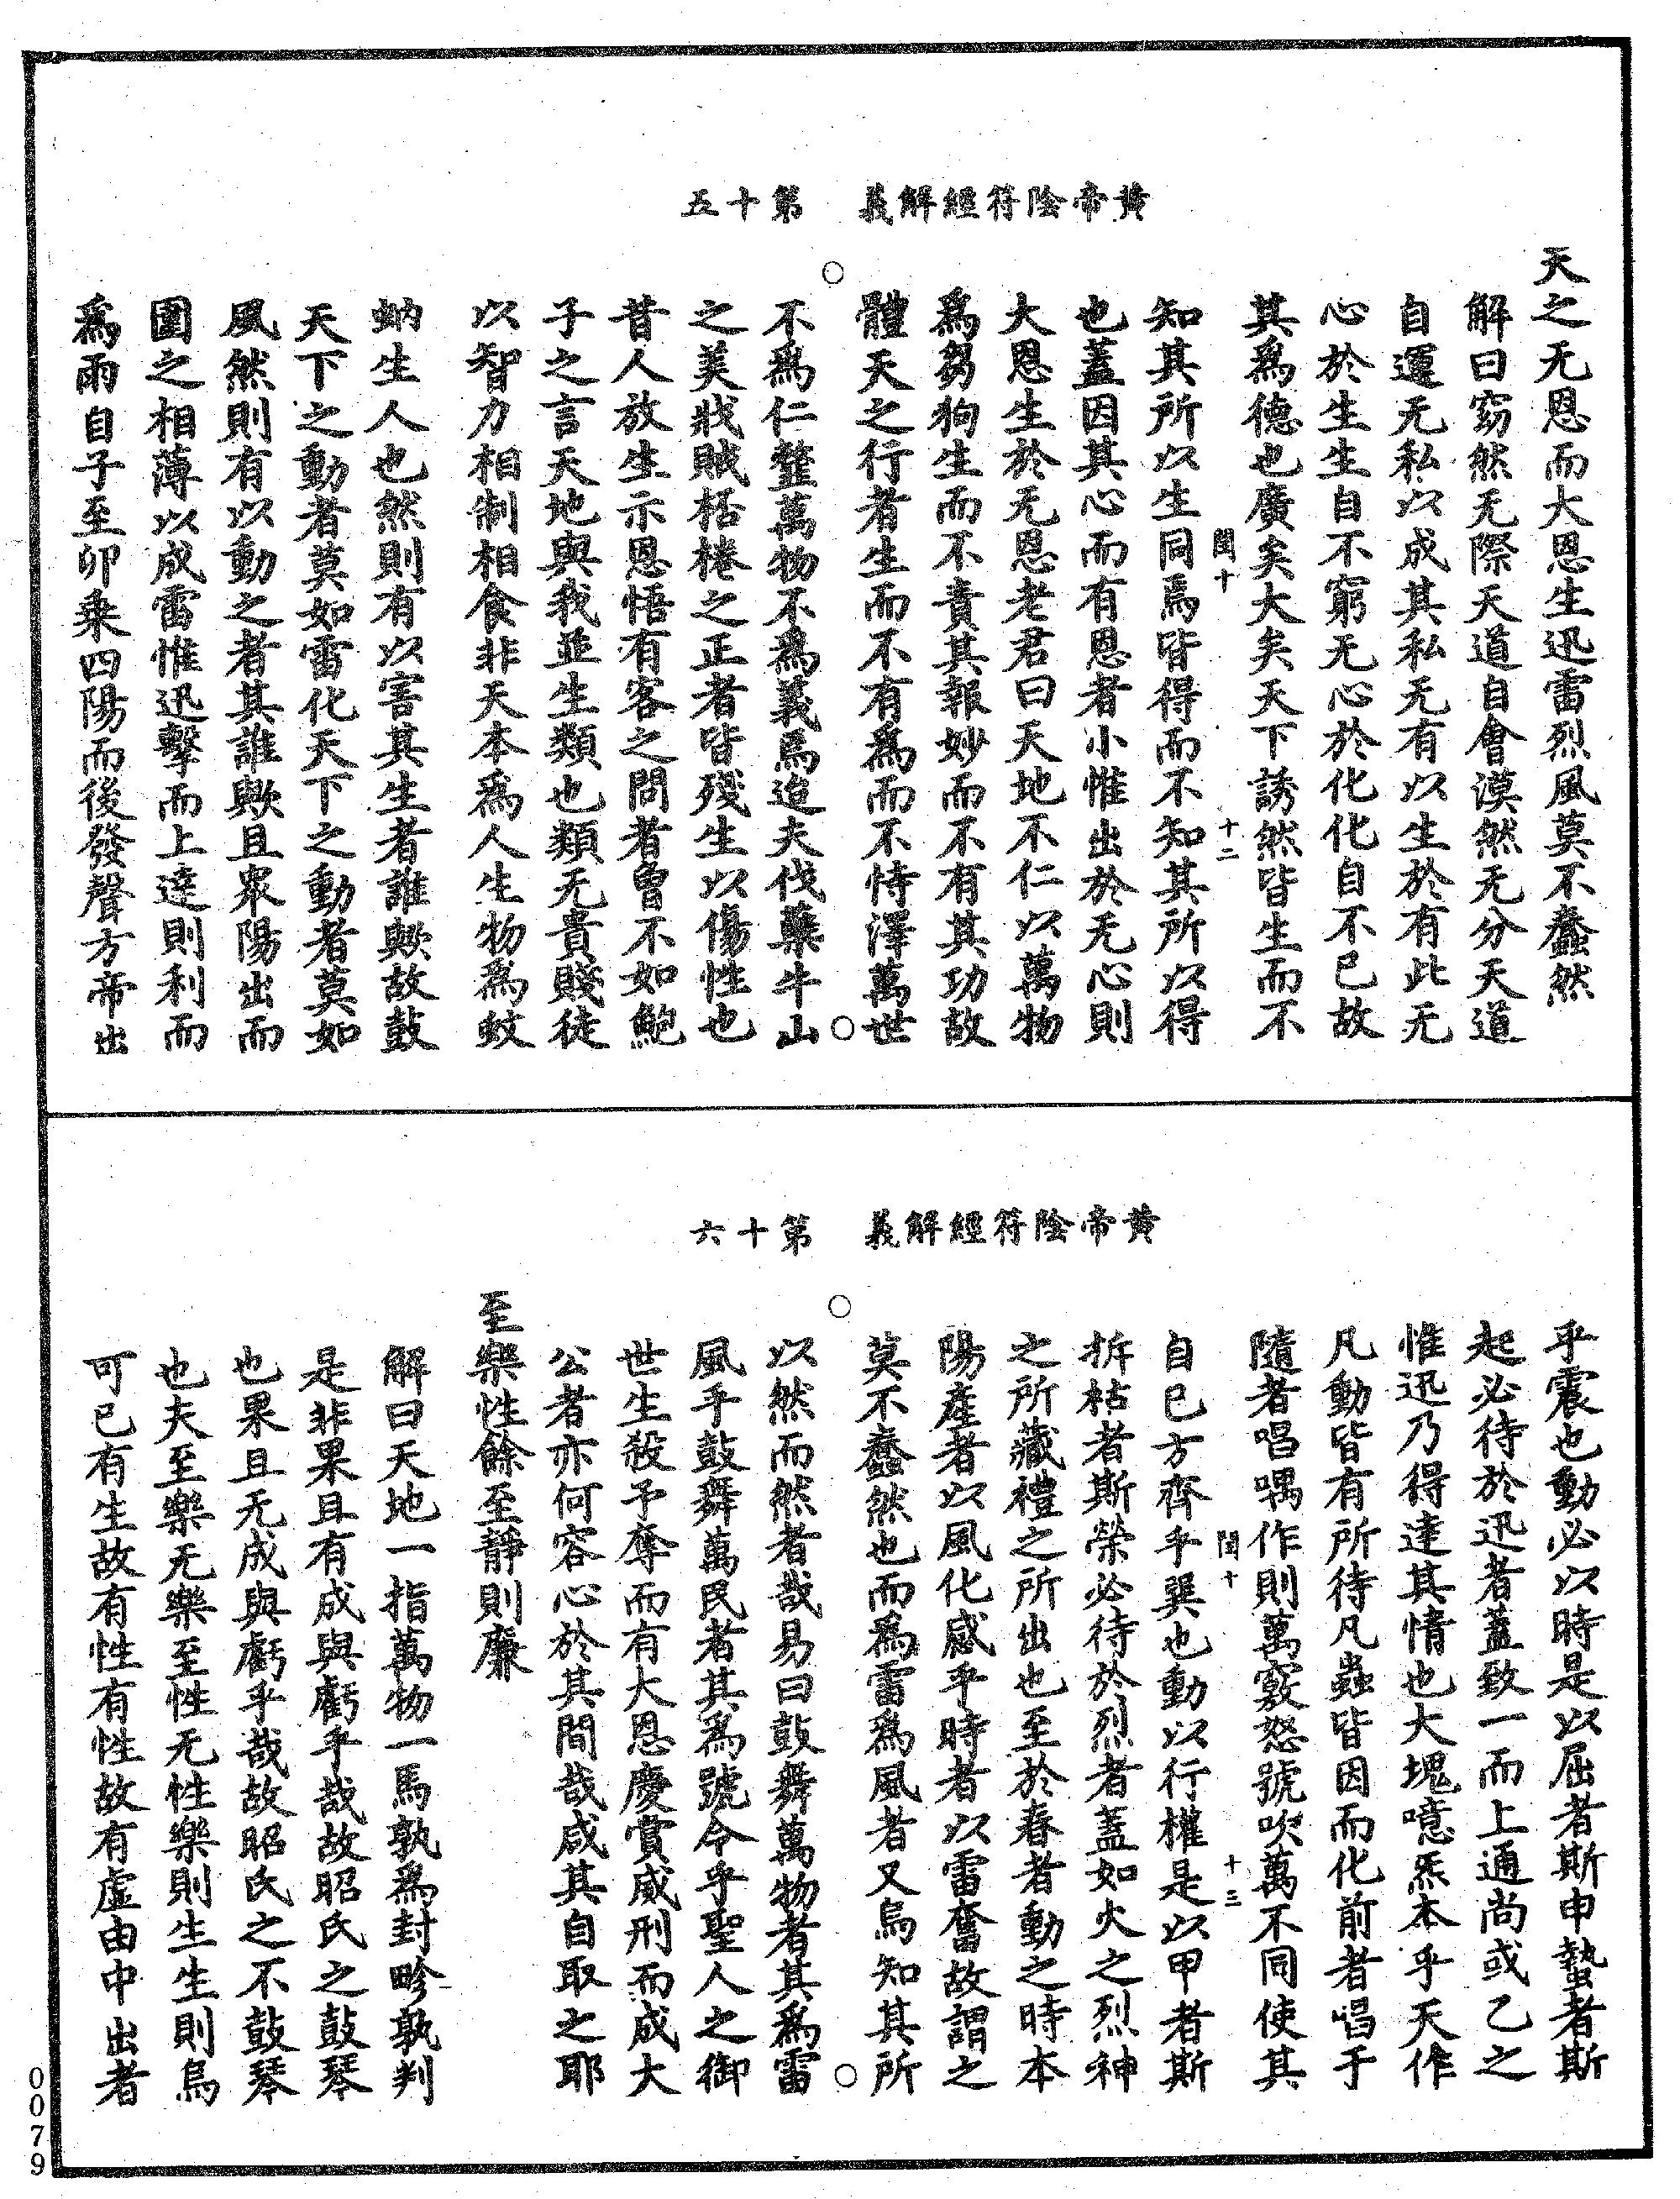 黃帝陰符經解義　第十五
天之无恩而大恩生迅雷烈風莫不蠢然
解曰窈然无際天道自會漠然无分天道
自運无私以成其私无有以生於有此无
心於生生自不窮无心於化化自不已故
其爲德也廣矣大矣天下誘然皆生而不
閏十　十二
知其所以生同焉皆得而不知其所以得
也蓋因其心而有恩者小惟出於无心則
大恩生於无恩老君曰天地不仁以萬物
爲芻狗生而不責其報妙而不有其功故
體天之行者生而不有爲而不恃澤萬世
不爲仁韲萬物不爲義焉迨夫伐蘖牛山
之美戕賊栝棬之正者皆殘生以傷性也
昔人放生示恩悟有客之問者曾不如鮑
子之言天地與我並生類也類无貴賤徒
以智力相制相食非天本爲人生物爲蚊
蚋生人也然則有以害其生者誰歟故鼓
天下之動者莫如雷化天下之動者莫如
風然則有以動之者其誰歟且衆陽出而
圍之相薄以成雷惟迅擊而上達則利而
爲雨自子至卯乘四陽而後發聲方帝出
黃帝陰符經解義　第十六
乎震也動必以時是以屈者斯申蟄者斯
起必待於迅者蓋致一而上通尚或乙之
惟迅乃得達其情也大塊噫炁本乎天作
凡動皆有所待凡蟲皆因而化前者唱于
隨者唱喁作則萬竅怒號吹萬不同使其
閏十　十三
自已方齊乎巽也動以行權是以甲者斯
拆枯者斯榮必待於烈者蓋如火之烈神
之所藏禮之所出也至於春者動之時本
陽產者以風化感乎時者以雷奮故謂之
莫不蠢然也而爲雷爲風者又烏知其所
以然而然者哉易曰鼓舞萬物者其爲雷
風乎鼓舞萬民者其爲號令乎聖人之御
世生殺予奪而有大恩慶賞威刑而成大
公者亦何容心於其間哉咸其自取之耶
至樂性餘至靜則廉
解曰天地一指萬物一馬孰爲封畛孰判
是非果且有成與虧乎哉故昭氏之鼓琴
也果且无成與虧乎哉故昭氏之不鼓琴
也夫至樂无樂至性无性樂則生生則烏
可已有生故有性有性故有虛由中出者
0079